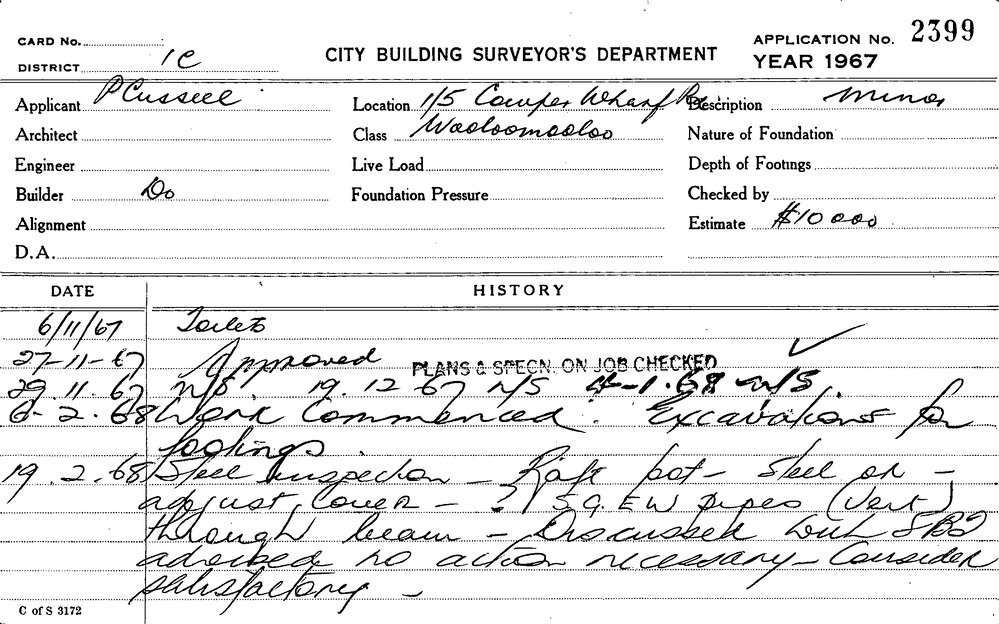 CARD No.
DISTRICT 1C
CITY BUILDING SURVEYOR'S DEPARTMENT
APPLICATION No. 2399
YEAR 1967
Applicant P Cussell
Location 1/5 Cowper Wharf Rd
Description Minor
Architect
Class Wooloomooloo
Nature of Foundation
Engineer
Live Load
Depth of Footings
Builder Do
Foundation Pressure
Checked by
Alignment
Estimate $10 000
D.A.
DATE HISTORY
6/11/67 Toilets
27-11-67 Approved PLANS & SPECN. ON JOB CHECKED ✓
29.11.67 N/S 19.12.67 N/S 4-1.68 N/S
6-2.68 Work Commenced. Excavations for
footings
19.2.68 Steel inspection - Raft bot- steel ok -
adjust cover - S.G.E.W pipes (Vert)
through beam - Discussed with SBI
advised no action necessary - Consider
satisfactory -
C of S 3172